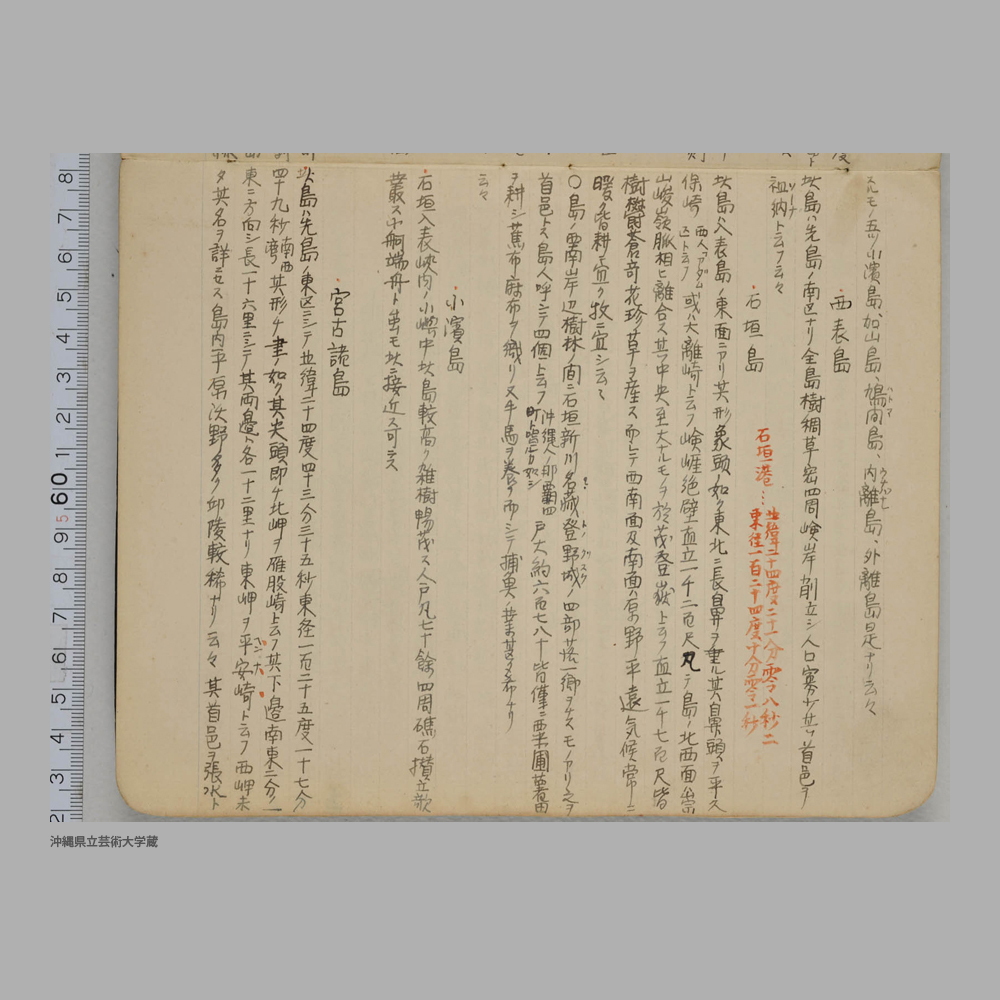 小濱島、加山島、鳩間島、内離島、外離島是ナリ云々
西表島
此島ハ先島ノ南区ナリ全島樹稠草密四周嶮岸削立シ人口寡少其首邑ヲ
祖納ト云フ云々
石垣島
石垣港…北緯二十四度二十一分零八秒二
東径一百二十四度十分零一秒
此島ハ入表島ノ東面ニアリ其形象頭ノ如ク東北ニ長鼻ヲ
其鼻頭ヲ平久
保崎 或ハ大離崎ト云フ嶮崖絶壁直立一千二百尺凡テ島ノ北西面ハ崇
山峻嶺脈相ヒ離合ス其中央至大ナルモノヲ於茂登嶽ト云フ直立一千七百尺皆
樹欝蒼奇花珍草ヲ産ス而シテ西南面及南面ハ原野平遠気候常ニ
暖ク皆耕ニ宜ク牧ニ宜シ云々
〇島ノ西南岸辺樹林ノ間ニ石垣新川名蔵登野城ノ四部落一郷ヲナスモノアリ之ヲ
首邑トス島人呼シテ四個ト云フ 沖縄人ノ那覇四町ト唱フル如シ 戸大約六百七八十皆僅ニ粟圃薯田
ヲ耕シ蕉布麻布ヲ織リ又牛馬ヲ養フ而シテ捕魚ノ業甚タ希ナリ
云々
小濱島
石垣入表峡内ノ小嶼中此島較高ク雑樹暢茂ス人戸凡七十餘四周礁石攢立
叢ス小舸端舟ト雖モ此ニ接近ス可ラス
宮古諸島
此島ハ先島ノ東区ニシテ北緯二十四度四十三分三十五秒東径一百二十五度一十七分
四十九秒 南西湾 其形チ ノ如ク其尖頭即チ北岬ヲ雁股崎ト云フ其下邉南東三分ノ一
東ニ方向シ長一十六里ニシテ其両邉ハ各一十二里ナリ東岬ヲ平安崎ト云フ西岬未
タ其名ヲ詳ニセス島内平原沃野多ク邱陵較稀ナリ云々其首邑ヲ張水ト
8 7 6 5 4 3 2 1 60 9 8 7 6 5 4 3 2
95
沖縄県立芸術大学蔵